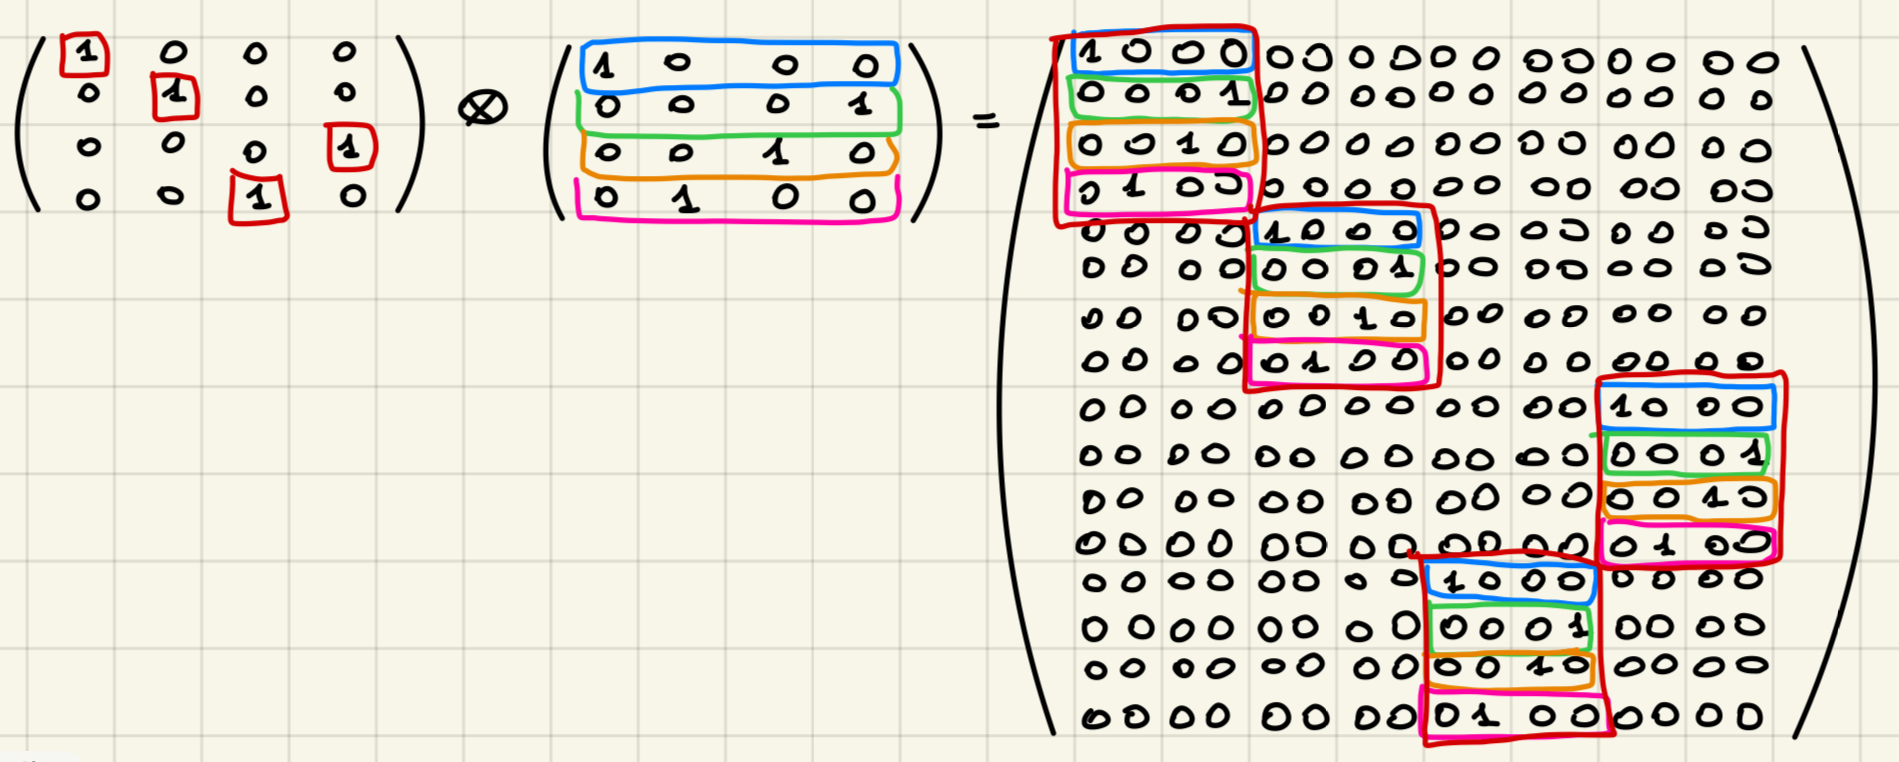 1 0 0 0
0 1 0 0
0 0 0 1
0 0 1 0
⊗
1 0 0 0
0 0 0 1
0 0 1 0
0 1 0 0
=
1 0 0 0 0 0 0 0 0 0 0 0 0 0 0 0
0 0 0 1 0 0 0 0 0 0 0 0 0 0 0 0
0 0 1 0 0 0 0 0 0 0 0 0 0 0 0 0
0 1 0 0 0 0 0 0 0 0 0 0 0 0 0 0
0 0 0 0 1 0 0 0 0 0 0 0 0 0 0 0
0 0 0 0 0 0 0 1 0 0 0 0 0 0 0 0
0 0 0 0 0 0 1 0 0 0 0 0 0 0 0 0
0 0 0 0 0 1 0 0 0 0 0 0 0 0 0 0
0 0 0 0 0 0 0 0 0 0 0 0 1 0 0 0
0 0 0 0 0 0 0 0 0 0 0 0 0 0 0 1
0 0 0 0 0 0 0 0 0 0 0 0 0 0 1 0
0 0 0 0 0 0 0 0 0 0 0 0 0 1 0 0
0 0 0 0 0 0 0 0 1 0 0 0 0 0 0 0
0 0 0 0 0 0 0 0 0 0 0 1 0 0 0 0
0 0 0 0 0 0 0 0 0 0 1 0 0 0 0 0
0 0 0 0 0 0 0 0 0 1 0 0 0 0 0 0